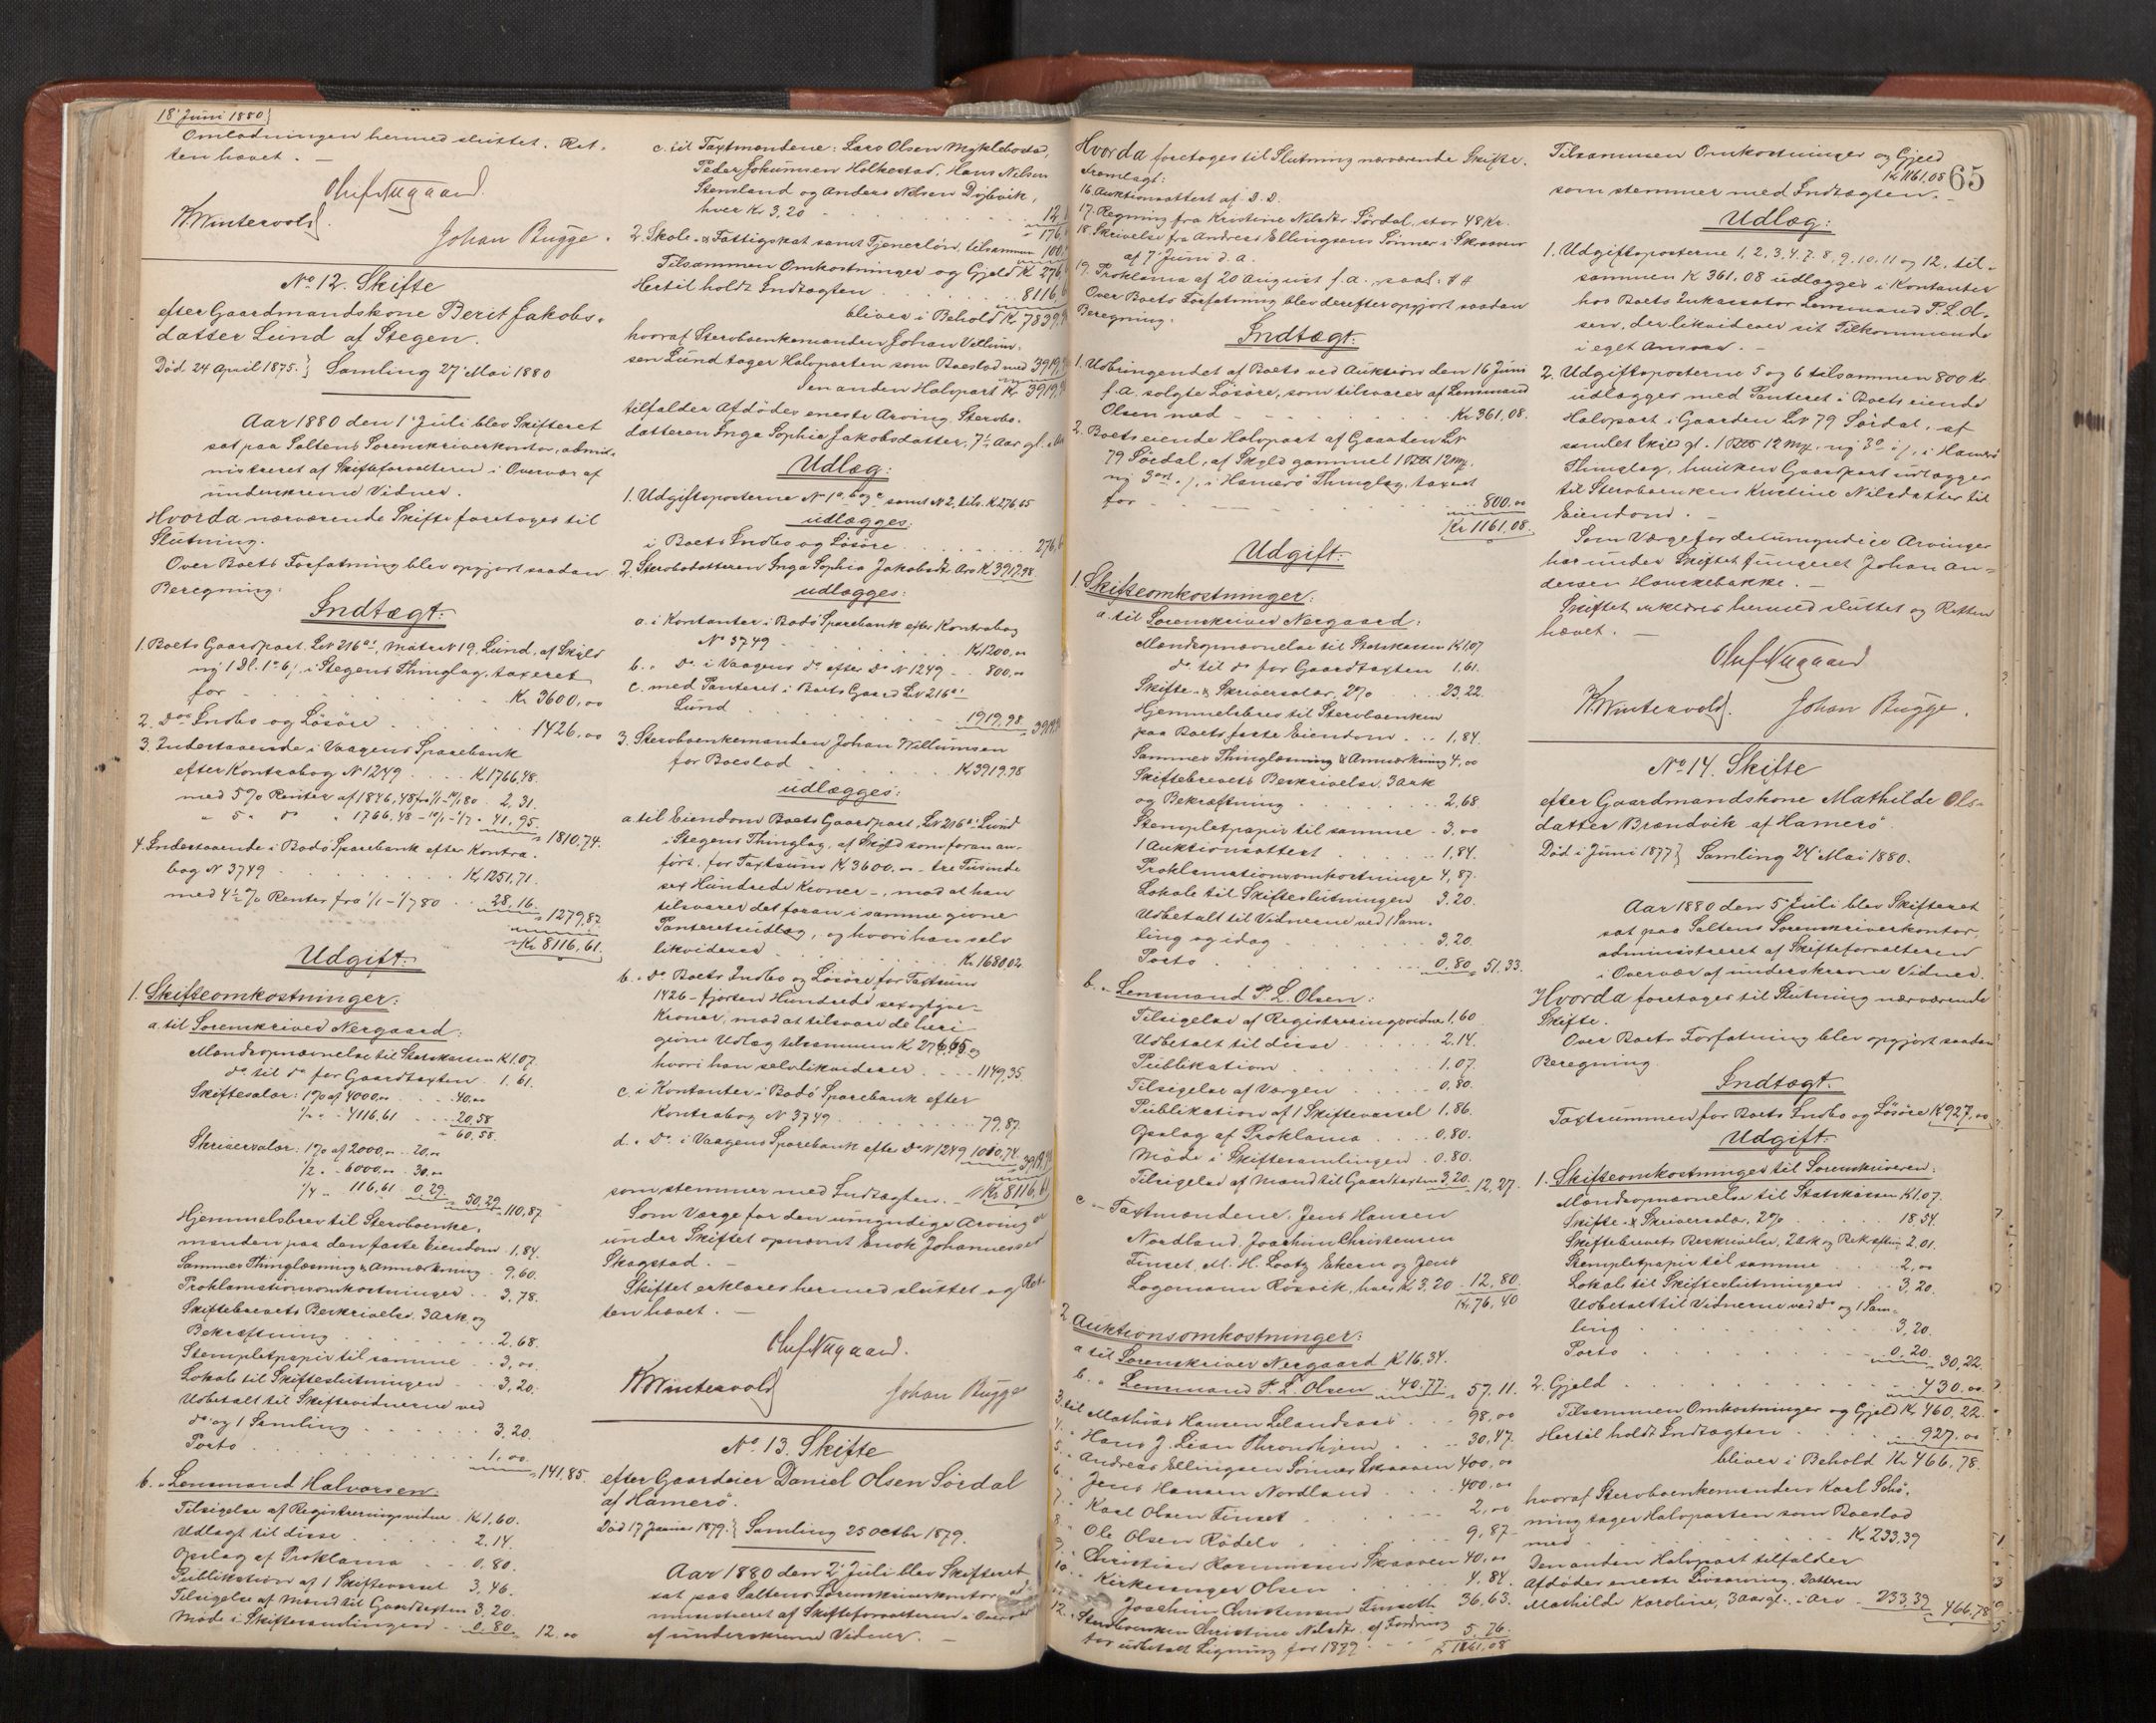 18' Juni 1880}
Omlodningen hermed sluttet. Ret-
ten hævet. –
Oluf Nugaard.
K. Wintervold.
Johan Bugge.
No 12. Skifte
efter Gaardmandskone Berit Jakobs-
datter Lund af Stegen.
Död 24 April 1875.} Samling 27' Mai 1880
Aar 1880 den 1' Juli blev Skifteret
sat paa Saltens Sorenskriverkontor, admi-
nistreret af Skifteforvalteren i Overvær af
underskrevne Vidner.
Hvorda nærværende Skifte foretoges til
Slutning.
Over Boets Forfatning blev opgjort saadan
Beregning:
Indtægt:
1. Boets Gaardpart, LN 216 a1, Matr N 19, Lund, af Skyld
ny 1 Dl. 1 o 6 /, i Stegens Thinglag, taxeret
for . . . Kr 3600,00
2. Do Indbo og Lösöre . . . 1426,00
3. Indestaaende i Vaagens Sparebank
efter Kontrabog N 1249 . . . K 1766,48.
med 5 % Renter af 1846,48 fra 1/1 - 10/1 80 . 2,31.
" 5 " do " 1766,48 - 10/1 - 1/7 " 41,95. " 1810,74.
4. Indestaaende i Bodö Sparebank efter Kontra-
bog N 3749 . . . Kr 1251,71.
med 4½ % Renter fra 1/1 - 1/7 80 . . 28,16. " 1279,87
Kr 8116,61.
Udgift:
1. Skifteomkostninger:
a. til Sorenskriver Nergaard:
Mandsopnævnelse til Statskassen K 1,07.
do til do for Gaardtaxten . 1,61.
Skiftesalær: 1 % af 4000,00 . . 40,00
½ " " 4116,61 . . 20,58
" 60,58.
Skriversalær: 1 % af 2000,00 . . 20,00
½ " " 6000,00 . 30,00
¼ " 116,61 . 0,29. " 50,29 " 110,87
Hjemmelsbrev til Sterboenke-
manden paa den faste Eiendom . 1,84.
Sammes Thinglæsning & Anmærkning . 9,60.
Proklamationsomkostninger . . 3,78.
Skiftebrevets Beskrivelse, 3 Ark og
Bekræftning . . . 2,68.
Stempletpapir til samme . . 3,00.
Lokale til Skifteslutningen . . 3,20.
Udbetalt til Skiftevidnerne ved
do og 1 Samling . . . 3,20.
Porto . . . 1,00. " 141,85.
b. " Lensmand Halvorsen:
Tilsigelse af Registreringsvidner . K 1,60.
Udlagt til disse . . . 2,14.
Opslag af Proklama . . 0,80.
Publikation af 1 Skiftevarsel 3,46.
Tilsigelse af Mænd til Gaardtaxten 3,20.
Möde i Skiftesamlingen . . 0,80. " 12,00
c. til Taxtmændene: Lars Olsen Myklebostad,
Peder Jokumsen Holkestad, Hans Nilsen
Stensland og Anders Nilsen Dypvik,
hver Kr 3,20 . . . 12,
" 176,
2. Skole- & Fattigskat samt Tjenerlön, tilsammen 100,
Tilsammen Omkostninger og Gjeld K 276,
Hertil holdt Indtægten . . . 8116,6
bliver i Behold Kr 7839,9
hvoraf Sterboenkemanden Johan Vellum-
sen Lund tager Halvparten som Boeslod med 3919,9
den anden Halvpart Kr 3919,9
tilfalder Afdödes eneste Arving Sterbo-
datteren Inga Sophia Jakobsdatter, 7½ Aar gl. i Arv
Udlæg:
1. Udgiftsposterne N 1 a, b og c samt N 2, tils. K 276,65
udlægges:
i Boets Indbo og Lösöre . . . 276,6
2. Sterbodatteren Inga Sophia Jakobsdr. Arv K 3919,98.
udlægges:
a. i Kontanter i Bodö Sparebank efter Kontrabog
No 3749 . . . Kr 1200,00
b. " Do. i Vaagens do efter do N 1249 . . 800,00
c. med Panteret i Boets Gaard LN 216 a1
Lund . . . 1919,98. 3919,9
3. Sterboenkemanden Johan Willumsen
for Boeslod . . . Kr 3919.98
udlægges:
a. til Eiendom Boets Gaardpart, LN 216 a1 Lund
i Stegens Thinglag, af Skyld som foran an-
fört, for Taxtsum K 3600,00 – tre Tusinde
sex Hundrede Kroner –, mod at han
tilsvarer det foran i samme givne
Panteretsudlæg, og hvori han selv
likviderer . . . Kr 1680,02.
b. " do Boets Indbo og Lösöre for Taxtsum
1426 – fjorten Hundrede sex og tyve –
Kroner, mod at tilsvare de heri
givne Udlæg tilsammen K 276,65, og
hvori han selv likviderer . . . . 1149,35.
c. i Kontanter i Bodö Sparebank efter
Kontrabog N 3749 . . . 79,87.
d. " Do. i Vaagens Sparebank efter do N 1249 1010,74. 3919,9
som stemmer med Indtægten. – Kr 8116,6
Som Værge for den umyndige Arving er
under Skiftet opnævnt Enok Johannessen
Skagstad. –
Skiftet erklæres hermed sluttet og Ret-
ten hævet. –
Oluf Nugaard.
K. Wintervold
Johan Bugge
No 13. Skifte
efter Gaardeier Daniel Olsen Sördal
af Hamerö.
Död 17 Januar 1879.} Samling 25 Octbr 1879.
Aar 1880 den 2' Juli blev Skifteret
sat paa Saltens Sorenskriverkontor, ad-
ministreret af Skifteforvalteren i Overvær
af underskrevne Vidner. –
65
Hvorda foretoges til Slutning nærværende Skifte.
Fremlagt:
16. Auktionsattest af D. D.
17. Regning fra Kristine Nilsdtr Sördal, stor 48 Kr.
18. Skrivelse fra Andreas Ellingsens Sönner i Skraaven
af 7' Juni d. a.
19. Proklama af 20 August f. a.,
Over Boets Forfatning blev derefter opgjort saadan
Beregning:
Indtægt:
1. Udbringendet af Boets ved Auktion den 16 Juni
f. a. solgte Lösöre, som tilsvares af Lensmand
Olsen med . . . Kr 361,08.
2. Boets eiende Halvpart af Gaarden LN
79 Sördal, af Skyld gammel 1 Pd 12 Mrk.
ny 3 ort . /, i Hamerö Thinglag, taxeret
for . . . 800,00
Kr 1161,08.
Udgift:
1. Skifteomkostninger:
a. til Sorenskriver Nergaard:
Mandsopnævnelse til Statskassen K 1,07
do til do for Gaardtaxten 1,61.
Skifte- & Skriversalær, 2 % . . . 23,22.
Hjemmelsbrev til Sterboenken
paa Boets faste Eiendom . . . 1,84.
Sammes Thinglæsning & Anmærkning 4,00
Skiftebrevets Beskrivelse, 3 Ark
og Bekræftning . . . 2,68
Stempletpapir til samme . 3,00.
1 Auktionsattest . . . 1,84.
Proklamationsomkostninge 4,87.
Lokale til Skifteslutningen 3.20.
Udbetalt til Vidnerne ved 1 Sam-
ling og idag . . . 3,20.
Porto . . . 0,80 " 51,33.
b. " Lensmand P. L. Olsen:
Tilsigelse af Registreringsvidner 1,60
Udbetalt til disse . . . 2.14.
Publikation . . . 1,07.
Tilsigelse af Værgen . . 0,80.
Publikation af 1 Skiftevarsel 1,86.
Opslag af Proklama . . . 0,80.
Möde i Skiftesamlingen . 0.80.
Tilsigelse af Mænd til Gaardtaxten 3,20. " 12,27.
c. – Taxtmændene, Jens Hansen
Nordland, Joachim Christensen
Finset, M. H. Lootz Ekern og Jens
Logemann Rösvik, hver K 3,20 . 12,80.
Kr 76,40
2. Auktionsomkostninger:
a. til Sorenskriver Nergaard K 16,34.
b. " Lensmand P. L. Olsen . 40,77. " 57,11.
3. til Mathias Hansen . . . 98,00
4. " Hans J. Lian Throndhjem . . . 30,47.
5. " Andreas Ellingsen Sönner Skraaven 400,00
6. " Jens Hansen Nordland . . . 400,00
7. " Karl Olsen Finset . . . 2,00
8. " Ole Olsen Rödelv . . . 9,87
9. " Christian Rasmussen Skraaven 40,00
10. " Kirkesanger Olsen . . . 4,84.
11. " Joachim Christensen Finseth 36,63.
12. " Sterboenken Christine Nilsdtr. af Fordring
for udbetalt Ligning for 1879 . . . 5,76.
Kr 1161,08
Tilsammen Omkostninger og Gjeld
Kr 1161,08
som stemmer med Indtægten. –
Udlæg:
1. Udgiftsposterne 1, 2, 3, 4, 7, 8, 9, 10, 11 og 12, til-
sammen K 361,08 udlægges i Kontanter
hos Boets Inkassator Lensmand P. L. Ol-
sen, der likviderer sit Tilkommende
i eget Ansvar. –
2. Udgiftsposterne 5 og 6 tilsammen 800 Kr
udlægges med Panteret i Boets eiende
Halvpart i Gaarden LN 79 Sördal, af
samlet Skyld gl. 1 Pd 12 Mrk, ny 3 o . /, i Hamerö
Thinglag, hvilken Gaardpart udlægges
til Sterboenken Kristine Nilsdatter til
Eiendom. –
Som Værge for de umyndige Arvinger
har under Skiftet fungeret Johan An-
dersen Hauckebakke. –
Skiftet erklæres hermed sluttet og Retten
hævet. –
Oluf Nugaard
K. Wintervold. Johan Bugge.
No 14. Skifte
efter Gaardmandskone Mathilde Ols-
datter Brændvik af Hamerö
Död i Juni 1877} Samling 24' Mai 1880.
Aar 1880 den 5' Juli blev Skifteret
sat paa Saltens Sorenskriverkontor,
administreret af Skifteforvalteren
i Overvær af underskrevne Vidner.
Hvorda foretoges til Slutning nærværende
Skifte.
Over Boets Forfatning blev opgjort saadan
Beregning
Indtægt.
Taxtsummen for Boets Indbo og Lösöre K 927,00
Udgift:
1. Skifteomkostninger til Sorenskriveren:
Mandsopnævnelse til Statskassen K 1,07.
Skifte- & Skriversalær, 2 % . . . 18,54.
Skiftebrevets Beskrivelse, 2 Ark og Bekræftn. 2,01.
Stempletpapir til samme . . . 2,00
Lokal til Skifteslutningen . . . 3,20.
Udbetalt til Vidnerne ved do og 1 Sam-
ling . . . 3,20.
Porto . . . 0,20. " 30,22.
2. Gjeld . . . 430,00
Tilsammen Omkostninger og Gjeld Kr 460,22.
Hertil holdt Indtægten . . . 927,00
bliver i Behold Kr 466,78.
hvoraf Sterboenkemanden Karl Schö-
ning tager Halvparten som Boeslod
med . . . Kr 233,39
Den anden Halvpart tilfalder
Afdödes eneste Livsarving, Datteren
Mathilde Karoline, 3 Aar gl. i Arv . 233,39 " 466,78